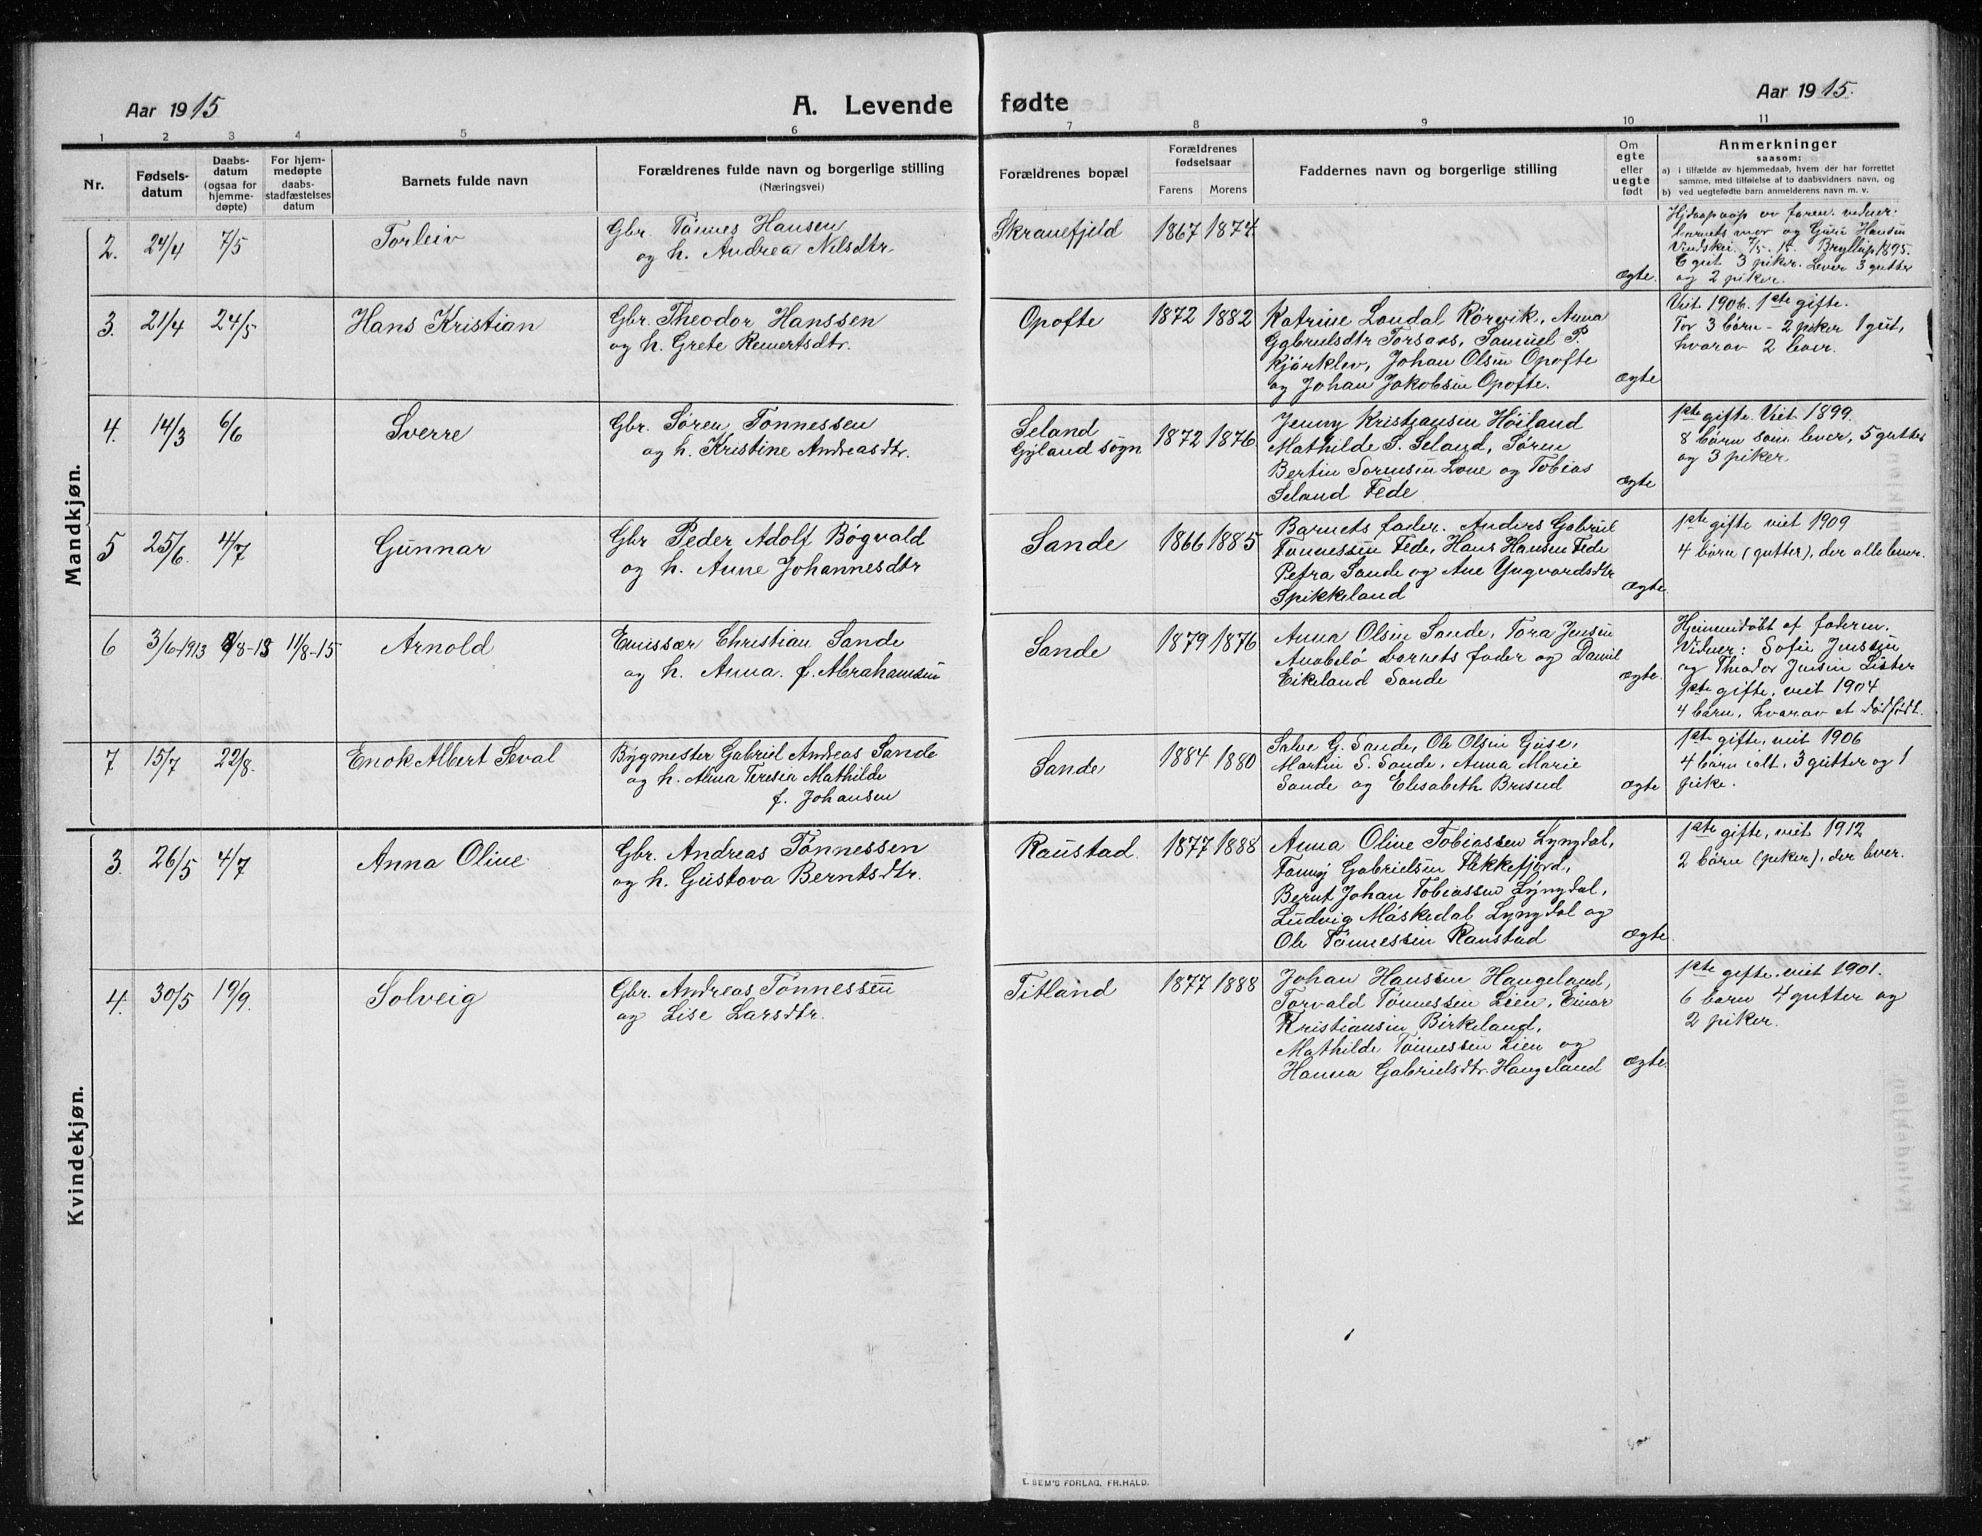 Aar 1915
A. Levende fødte
Aar 1915.
1 2 3 4 5 6 7 8 9 10 11
Nr.
Fødsels-
datum
Daabs-
datum
(ogsaa for
hjemme-
døpte)
For hjem-
medøpte
daabs-
stadfæstelses
datum
Barnets fulde navn
Forældrenes fulde navn og borgerlige stilling
(Næringsvei)
Forældrenes bopæl
Forældrenes
fødselsaar
Farens Morens
Faddernes navn og borgerlige stilling
Om
egte
eller
uegte
født
Anmerkninger
saasom:
a) i tilfælde av hjemmedaab, hvem der har forrettet
samme, med tilføielse af to daabsvidners navn, og
b) ved uegtefødte barn anmelderens navn m. v.
Mandkjøn.
2. 24/4 7/5 Torleiv
Gbr. Tønnes Hansen
og h. Andrea Nilsdtr.
Skranefjeld 1867 1874
ægte.
av faren. vidner:
barnets mor og Hansen
7/5. 15. Bryllup 1895.
6 gut 3 piker. Lever 3 gutter
og 2 piker.
3. 21/4 24/5 Hans Kristian
Gbr. Theodor Hanssen
og h. Grete Reinertsdtr.
Opofte 1872 1882
Katrine Londal Rørvik, Anna
Gabrielsdtr Torsaas, Samuel P.
Kjørklev, Johan Olsen Opofte
og Johan Jakobsen Opofte.
ægte
Viet. 1906. 1ste gifte.
3 børn - 2 piker 1 gut,
hvorav 2 lever.
4. 14/3 6/6 Sverre
Gbr. Søren Tønnessen
og h. Kristine Andreasdtr.
Seland
Gyland sogn
1872 1876
Jenny Kristiansen Høiland
Mathilde S. Seland, Søren
Bertin Sørensen Lone og Tobias
Seland Fede
ægte
1ste gifte. Viet 1899.
8 børn som lever, 5 gutter
og 3 piker.
5 25/6. 4/7 Gunnar
Gbr Peder Adolf Bøgvald
og h. Anne Johannesdtr
Sande 1866 1885
Barnets fader. Anders Gabriel
Tønnessen Fede, Hans Hansen Fede
Petra Sande og Ane Yngvardsdtr
Spikkeland
ægte.
1ste gifte viet 1909
4 børn (gutter), der alle lever.
6 3/6 1913 8/8-13 11/8-15 Arnold
Emissær Christian Sande
og h. Anna f. Abrahamsen
Sande 1879 1876
Anna Olsen Sande, Tora Jensen
Anabelø barnets fader og Daniel
Eikeland Sande
ægte.
Hjemmedøbt af faderen.
Vidner: Sofie Jenssen
og Theodor Jensen Lister
1ste gifte, viet 1904
4 børn, hvorav et dødfødt.
7 15/7 22/8. Enok Albert Seval
Bygmester Gabriel Andreas Sande
og h. Alma Teresia Mathilde
f. Johansen
Sande 1884 1880
Salve G. Sande, Ole Olsen Guse,
Martin S. Sande, Anna Marie
Sande og Elisabeth Brisud
ægte
1ste gifte, viet 1906
4 børn ialt, 3 gutter og 1
pike.
Kvindekjøn.
3. 26/5 4/7 Anna Oline
Gbr. Andreas Tønnessen
og h. Gustava Berntsdtr.
Raustad. 1877 1888
Anna Oline Tobiassen Lyngdal,
Fanny Gabrielsen Flekkefjord,
Bernt Johan Tobiassen Lyngdal,
Ludvig Møskedal Lyngdal og
Ole Tønnessen Raustad
ægte.
1ste gifte, viet 1912
2 børn (piker), der lever.
4. 30/5 19/9. Solveig
Gbr. Andreas Tønnessen
og Lise Larsdtr.
Titland 1877 1888
Johan Hanssen Haugeland,
Torvald Tønnessen Lien, Einar
Kristiansen Birkeland,
Mathilde Tønnessen Lien og
Hanna Gabrielsdtr. Haugeland
ægte.
1ste gifte. viet 1901.
6 børn 4 gutter og
2 piker.
E. SEM'S FORLAG, FR.HALD.